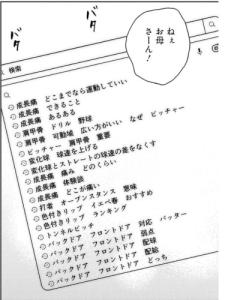 ねぇ
お母
さーん！
バタ
バタ
検索
成長痛　どこまでなら運動していい
成長痛　できること
成長痛　あるある
肩甲骨　ドリル　野球
肩甲骨　可動域　広い方がいい　なぜ　ピッチャー
ピッチャー　肩甲骨　重要
変化球　球速を上げる
変化球とストレートの球速の差をなくす
成長痛　痛み　どのくらい
成長痛　体験談
成長痛　どこが痛い
打者　オープンスタンス　意味
色付きリップ　イエベ春　おすすめ
色付きリップ　ランキング
トンネルピッチ
バックドア　フロントドア　対応　バッター
バックドア　フロントドア　弱点
バックドア　フロントドア　配球
バックドア　フロントドア　配給
バックドア　フロントドア　どっち